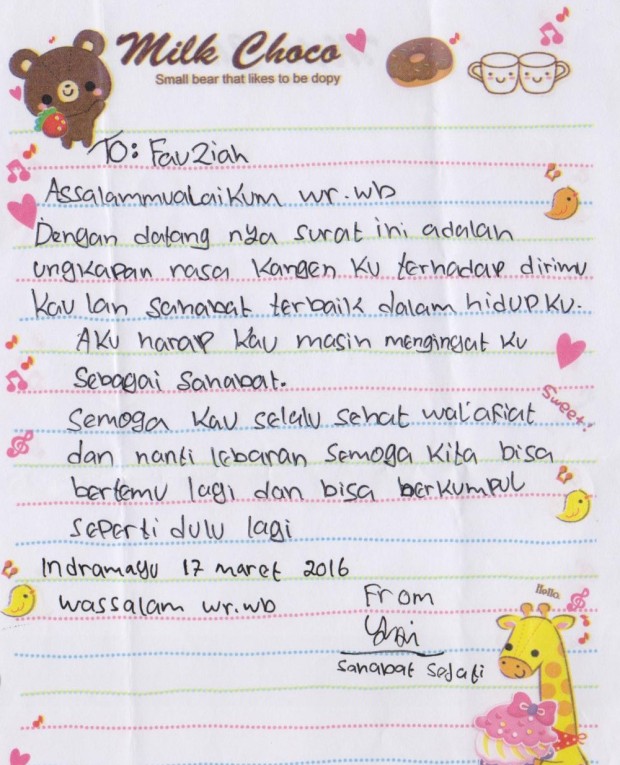 Milk Choco
Small bear that likes to be dopy
To: Fauziah
Assalammualaikum wr.wb
Dengan datang nya surat ini adalah
ungkapan rasa kangen ku terhadap dirimu
kau lah sahabat terbaik dalam hidup ku.
Aku harap kau masih mengingat ku
sebagai sahabat.
Semoga kau selalu sehat wal'afiat
dan nanti lebaran semoga kita bisa
bertemu lagi dan bisa berkumpul
seperti dulu lagi
Sweet!
Indramayu 17 maret 2016
wassalam wr.wb
From
Hello
sahabat sejati